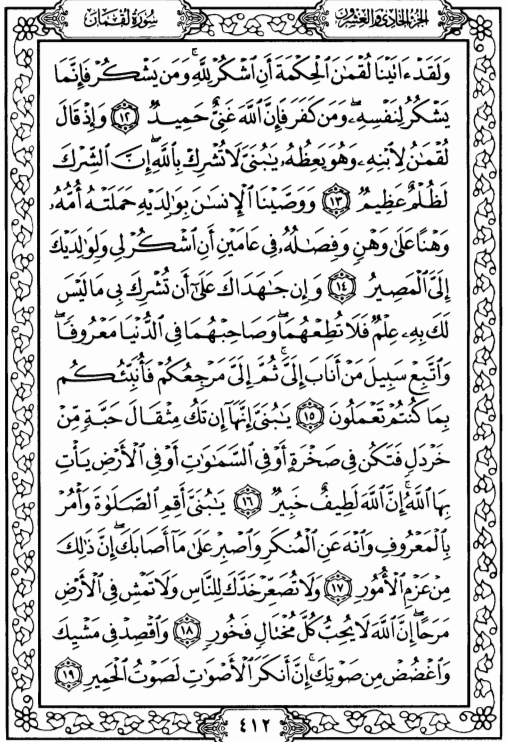 سُورَةُ لُقْمَان
الجُزْءُ الحَادِي وَالعِشْرُونَ
وَلَقَدْ ءَاتَيْنَا لُقْمَٰنَ ٱلْحِكْمَةَ أَنِ ٱشْكُرْ لِلَّهِ ۚ وَمَن يَشْكُرْ فَإِنَّمَا
يَشْكُرُ لِنَفْسِهِۦ ۖ وَمَن كَفَرَ فَإِنَّ ٱللَّهَ غَنِىٌّ حَمِيدٌ ١٢ وَإِذْ قَالَ
لُقْمَٰنُ لِٱبْنِهِۦ وَهُوَ يَعِظُهُۥ يَٰبُنَىَّ لَا تُشْرِكْ بِٱللَّهِ ۖ إِنَّ ٱلشِّرْكَ
لَظُلْمٌ عَظِيمٌ ١٣ وَوَصَّيْنَا ٱلْإِنسَٰنَ بِوَٰلِدَيْهِ حَمَلَتْهُ أُمُّهُۥ
وَهْنًا عَلَىٰ وَهْنٍ وَفِصَٰلُهُۥ فِى عَامَيْنِ أَنِ ٱشْكُرْ لِى وَلِوَٰلِدَيْكَ
إِلَىَّ ٱلْمَصِيرُ ١٤ وَإِن جَٰهَدَاكَ عَلَىٰٓ أَن تُشْرِكَ بِى مَا لَيْسَ
لَكَ بِهِۦ عِلْمٌ فَلَا تُطِعْهُمَا ۖ وَصَاحِبْهُمَا فِى ٱلدُّنْيَا مَعْرُوفًا ۖ
وَٱتَّبِعْ سَبِيلَ مَنْ أَنَابَ إِلَىَّ ۚ ثُمَّ إِلَىَّ مَرْجِعُكُمْ فَأُنَبِّئُكُم
بِمَا كُنتُمْ تَعْمَلُونَ ١٥ يَٰبُنَىَّ إِنَّهَآ إِن تَكُ مِثْقَالَ حَبَّةٍ مِّنْ
خَرْدَلٍ فَتَكُن فِى صَخْرَةٍ أَوْ فِى ٱلسَّمَٰوَٰتِ أَوْ فِى ٱلْأَرْضِ يَأْتِ
بِهَا ٱللَّهُ ۚ إِنَّ ٱللَّهَ لَطِيفٌ خَبِيرٌ ١٦ يَٰبُنَىَّ أَقِمِ ٱلصَّلَوٰةَ وَأْمُرْ
بِٱلْمَعْرُوفِ وَٱنْهَ عَنِ ٱلْمُنكَرِ وَٱصْبِرْ عَلَىٰ مَآ أَصَابَكَ ۖ إِنَّ ذَٰلِكَ
مِنْ عَزْمِ ٱلْأُمُورِ ١٧ وَلَا تُصَعِّرْ خَدَّكَ لِلنَّاسِ وَلَا تَمْشِ فِى ٱلْأَرْضِ
مَرَحًا ۖ إِنَّ ٱللَّهَ لَا يُحِبُّ كُلَّ مُخْتَالٍ فَخُورٍ ١٨ وَٱقْصِدْ فِى مَشْيِكَ
وَٱغْضُضْ مِن صَوْتِكَ ۚ إِنَّ أَنكَرَ ٱلْأَصْوَٰتِ لَصَوْتُ ٱلْحَمِيرِ ١٩
٤١٢